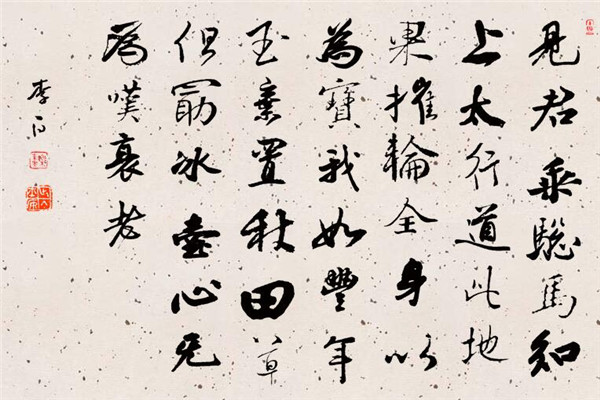 見君乘驄馬知
上太行道此地
果摧輪全身以
為寶我如豐年
玉棄置秋田草
但勗冰壺心无
為嘆衰老
李白